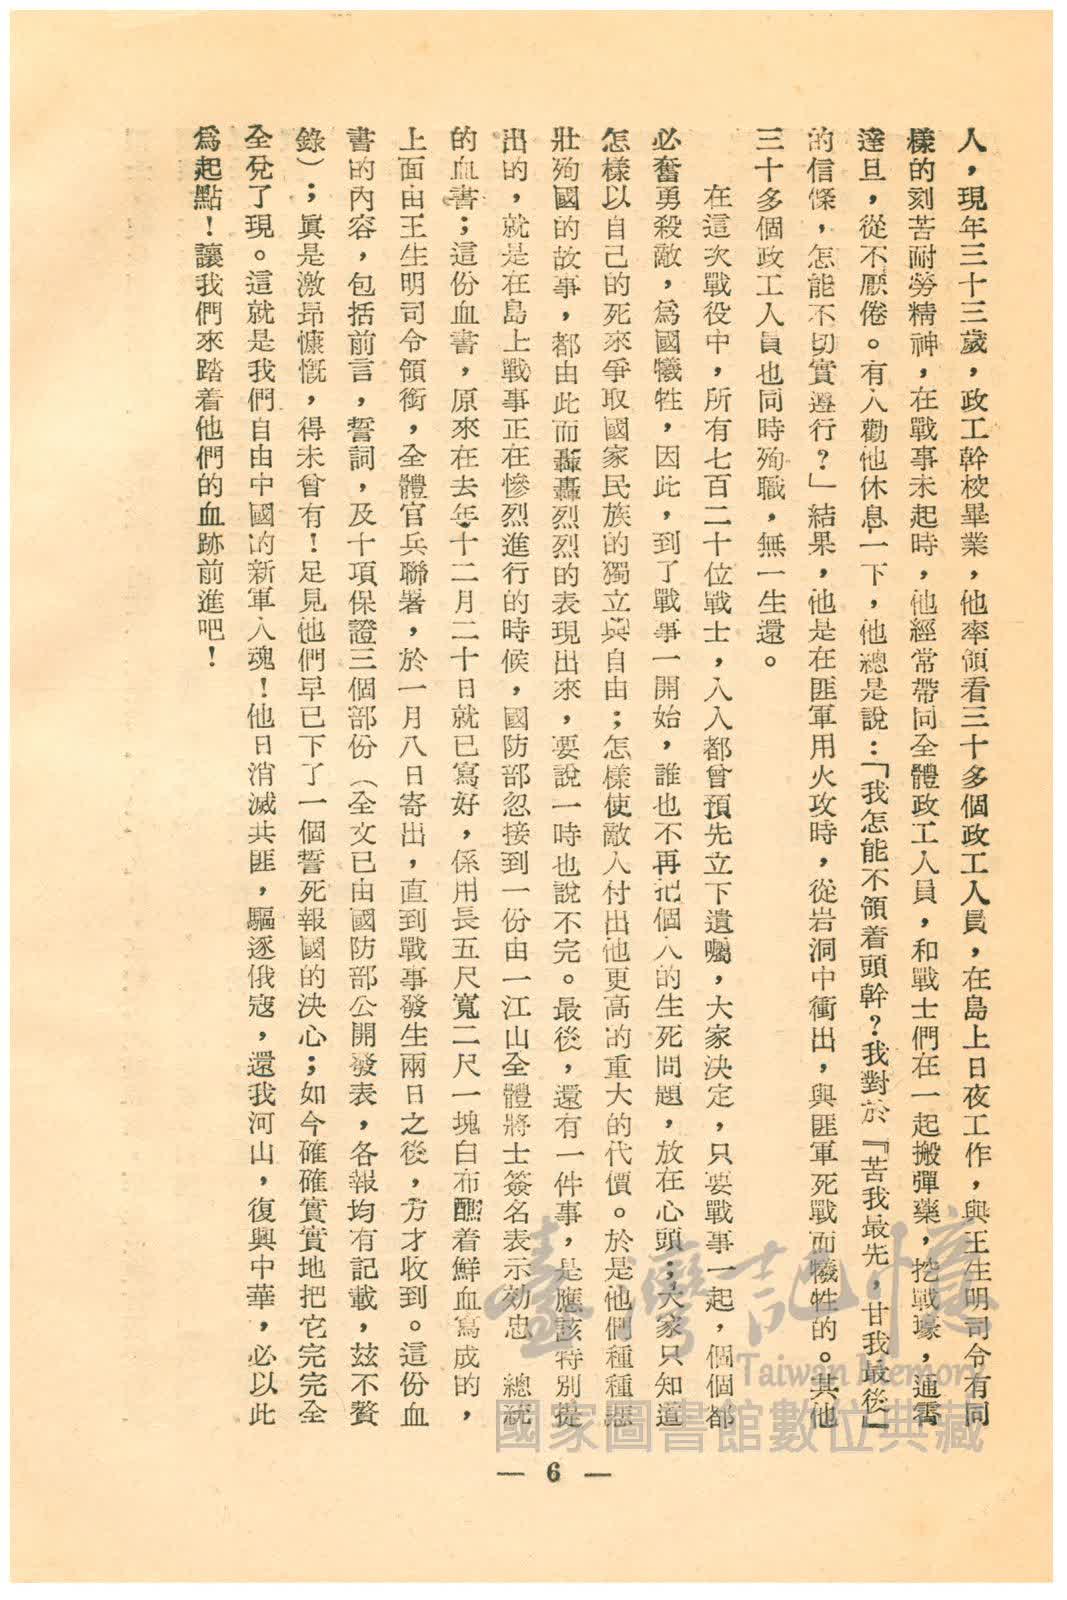 人，現年三十三歲，政工幹校畢業，他率領看三十多個政工人員，在島上日夜工作，與王生明司令有同
樣的刻苦耐勞精神，在戰事未起時，他經常帶同全體政工人員，和戰士們在一起搬彈藥，挖戰壕，通霄
達旦，從不厭倦。有人勸他休息一下，他總是說：「我怎能不領着頭幹？我對於『苦我最先，甘我最後』
的信條，怎能不切實遵行？」結果，他是在匪軍用火攻時，從岩洞中衝出，與匪軍死戰而犧牲的。其他
三十多個政工人員也同時殉職，無一生還。
在這次戰役中，所有七百二十位戰士，人人都曾預先立下遺囑，大家決定，只要戰事一起，個個都
必奮勇殺敵，爲國犧牲，因此，到了戰事一開始，誰也不再把個人的生死問題，放在心頭；大家只知道
怎樣以自己的死來爭取國家民族的獨立與自由；怎樣使敵人付出他更高的重大的代價。於是他們種種悲
壯殉國的故事，都由此而轟轟烈烈的表現出來，要說一時也說不完。最後，還有一件事，是應該特別提
出的，就是在島上戰事正在慘烈進行的時候，國防部忽接到一份由一江山全體將士簽名表示効忠　總統
的血書；這份血書，原來在去年十二月二十日就已寫好，係用長五尺寬二尺一塊白布醮着鮮血寫成的，
上面由王生明司令領銜，全體官兵聯署，於一月八日寄出，直到戰事發生兩日之後，方才收到。這份血
書的內容，包括前言，誓詞，及十項保證三個部份（全文已由國防部公開發表，各報均有記載，玆不贅
錄）；眞是激昂慷慨，得未曾有！足見他們早已下了一個誓死報國的決心；如今確確實實地把它完完全
全兌了現。這就是我們自由中國的新軍人魂！他日消滅共匪，驅逐俄寇，還我河山，復興中華，必以此
爲起點！讓我們來踏着他們的血跡前進吧！
— 6 —
臺灣記憶
Taiwan Memory
國家圖書館數位典藏